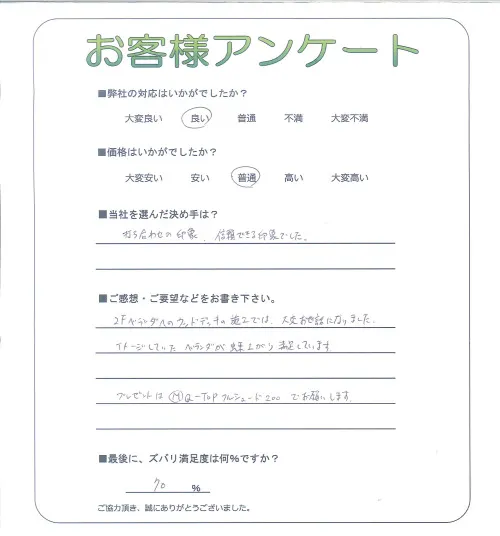 お客様アンケート
■弊社の対応はいかがでしたか？
大変良い 良い 普通 不満 大変不満
■価格はいかがでしたか？
大変安い 安い 普通 高い 大変高い
■当社を選んだ決め手は？
打ち合わせの印象、信頼できる印象でした。
■ご感想・ご要望などをお書き下さい。
2Fベランダへのウッドデッキの施工では、大変お世話になりました。
イメージしていたベランダが出来上がり満足しています。
プレゼントは ⑭Q-TOP フルシェード200 でお願いします。
■最後に、ズバリ満足度は何%ですか？
90 %
ご協力頂き、誠にありがとうございました。